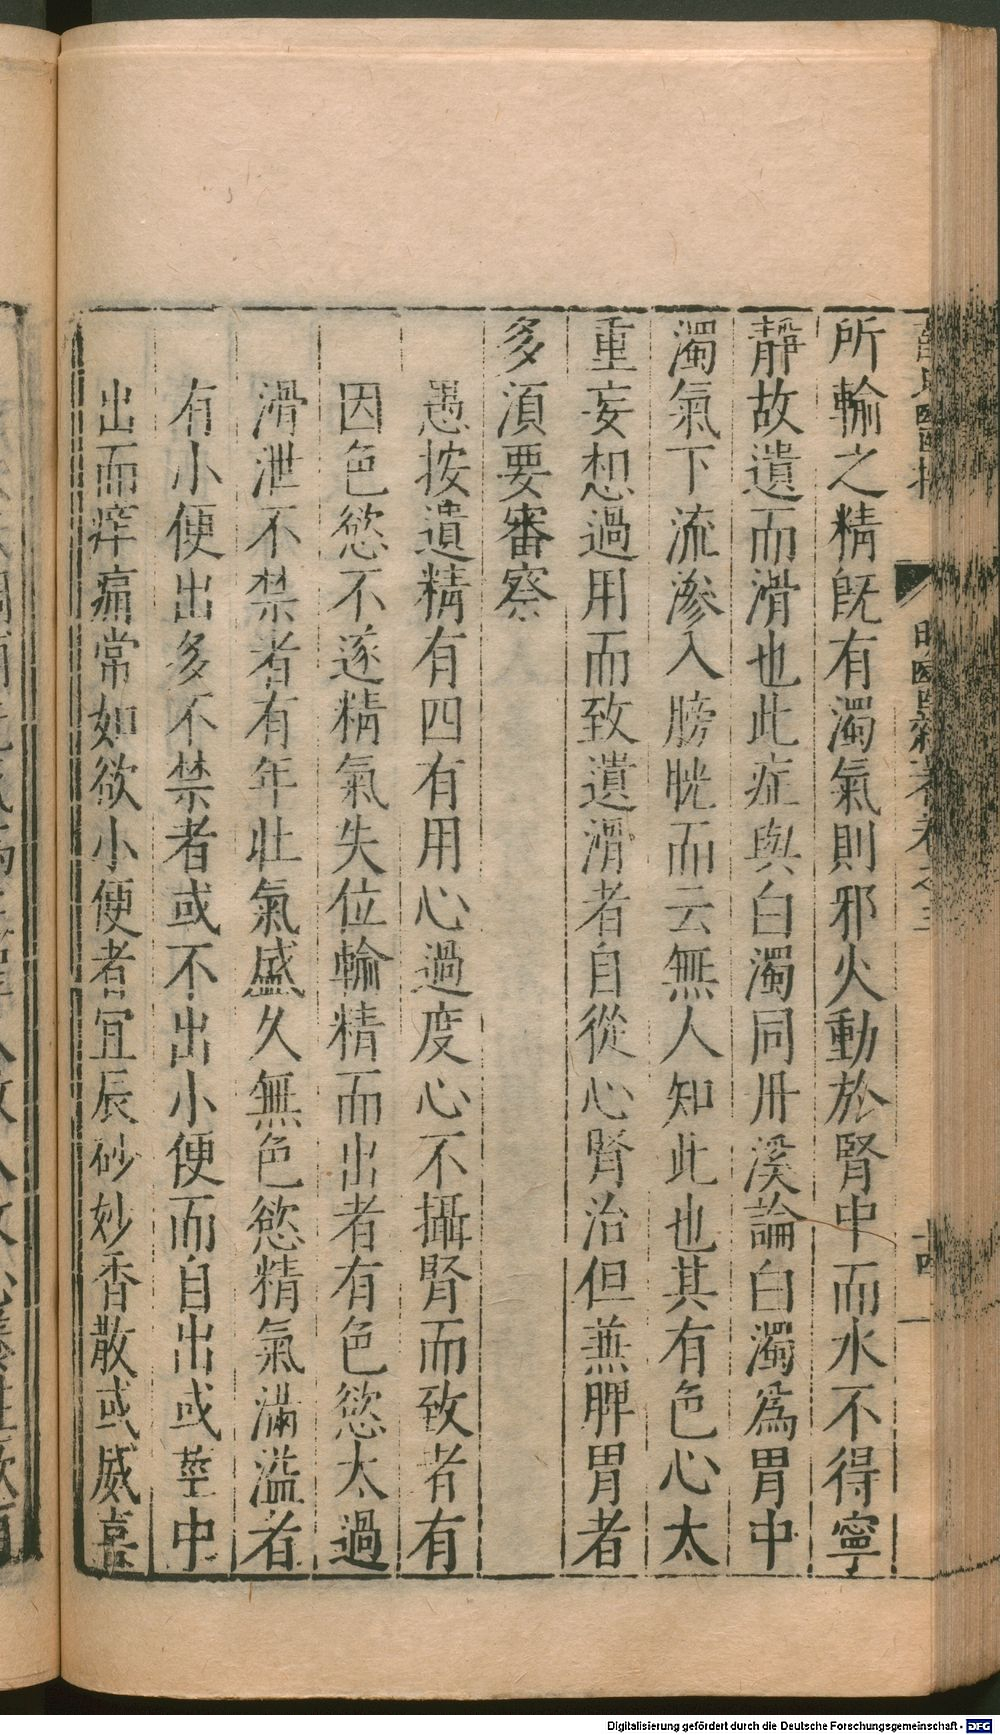 所輸之精旣有濁氣則邪火動於腎中而水不得寧
靜故遺而滑也此症與白濁同丹溪論白濁爲胃中
濁氣下流滲入膀胱而云無人知此也其有色心太
重妄想過用而致遺滑者自從心腎治但兼脾胃者
多湏要審察
愚按遺精有四有用心過度心不攝腎而致者有
因色慾不遂精氣失位輸精而出者有色慾太過
滑泄不禁者有年壯氣盛久無色慾精氣滿溢者
有小便出多不禁者或不出小便而自出或莖中
出而痒痛常如欲小便者宜辰砂妙香散或威喜
Digitalisierung gefördert durch die Deutsche Forschungsgemeinschaft - DFG